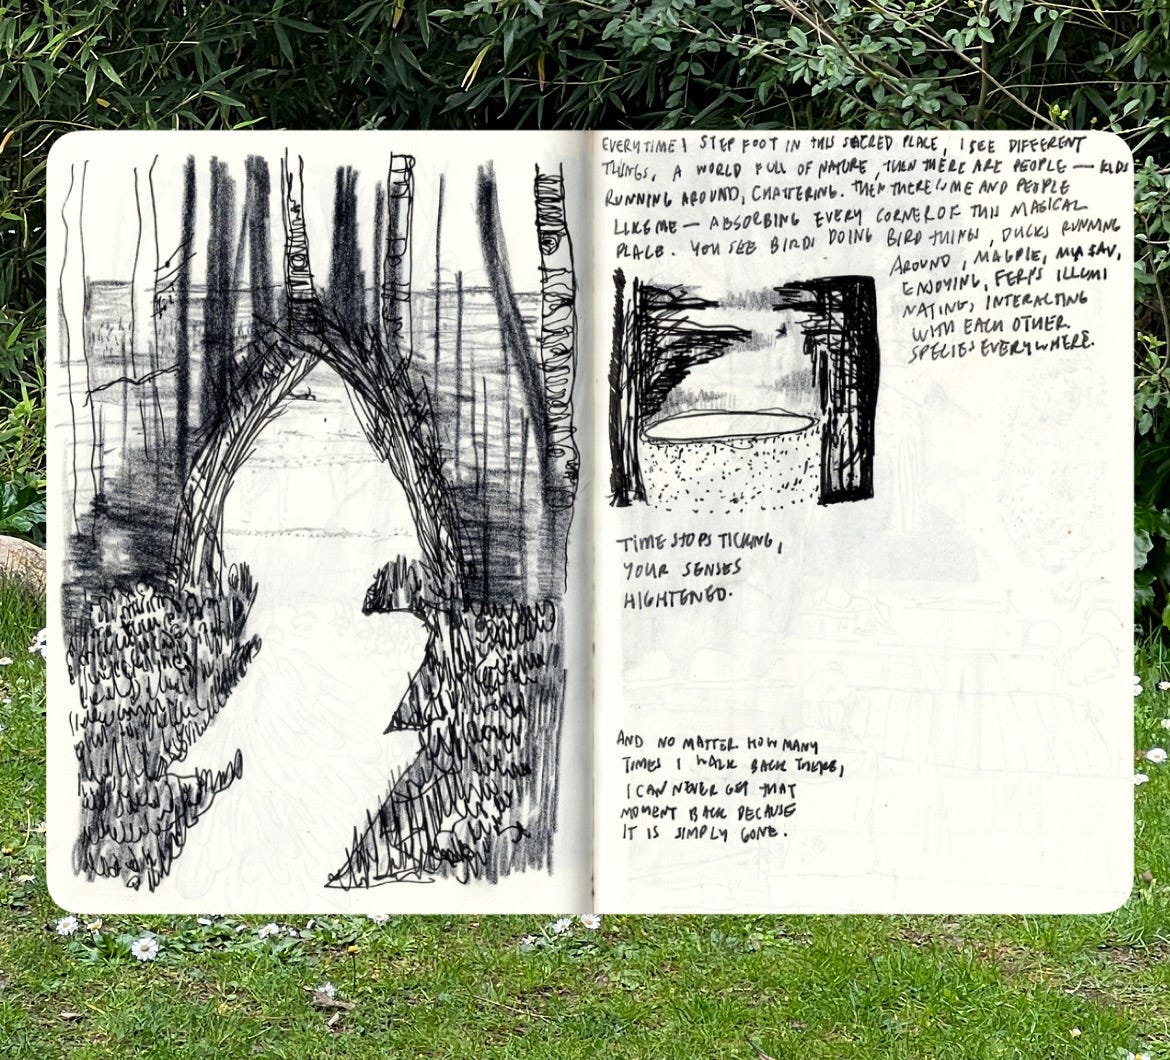 EVERYTIME I STEP FOOT IN THIS SACRED PLACE, I SEE DIFFERENT
THINGS, A WORLD FULL OF NATURE, THEN THERE ARE PEOPLE — KIDS
RUNNING AROUND, CHATTERING. THEN THERE'S ME AND PEOPLE
LIKE ME — ABSORBING EVERY CORNER OF THIS MAGICAL
PLACE. YOU SEE BIRDS DOING BIRD THINGS, DUCKS RUNNING
AROUND, MAGPIE, MY FAV,
ENJOYING, FERNS ILLUMI
NATING, INTERACTING
WITH EACH OTHER.
SPECIES EVERYWHERE.
TIME STOPS TICKING,
YOUR SENSES
HIGHTENED.
AND NO MATTER HOW MANY
TIMES I WALK BACK THERE,
I CAN NEVER GET THAT
MOMENT BACK BECAUSE
IT IS SIMPLY GONE.